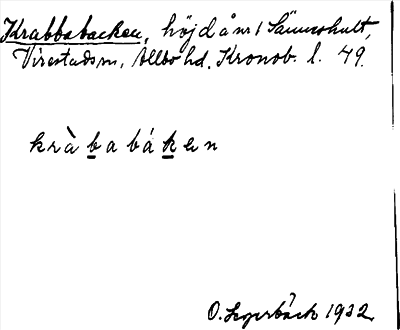 Krabbabacken, höjd å nr 1 Sännshult,
Virestads sn, Allbo hd. Kronob. l. 49.
kràbabákan
O. Segerbäck 1932.